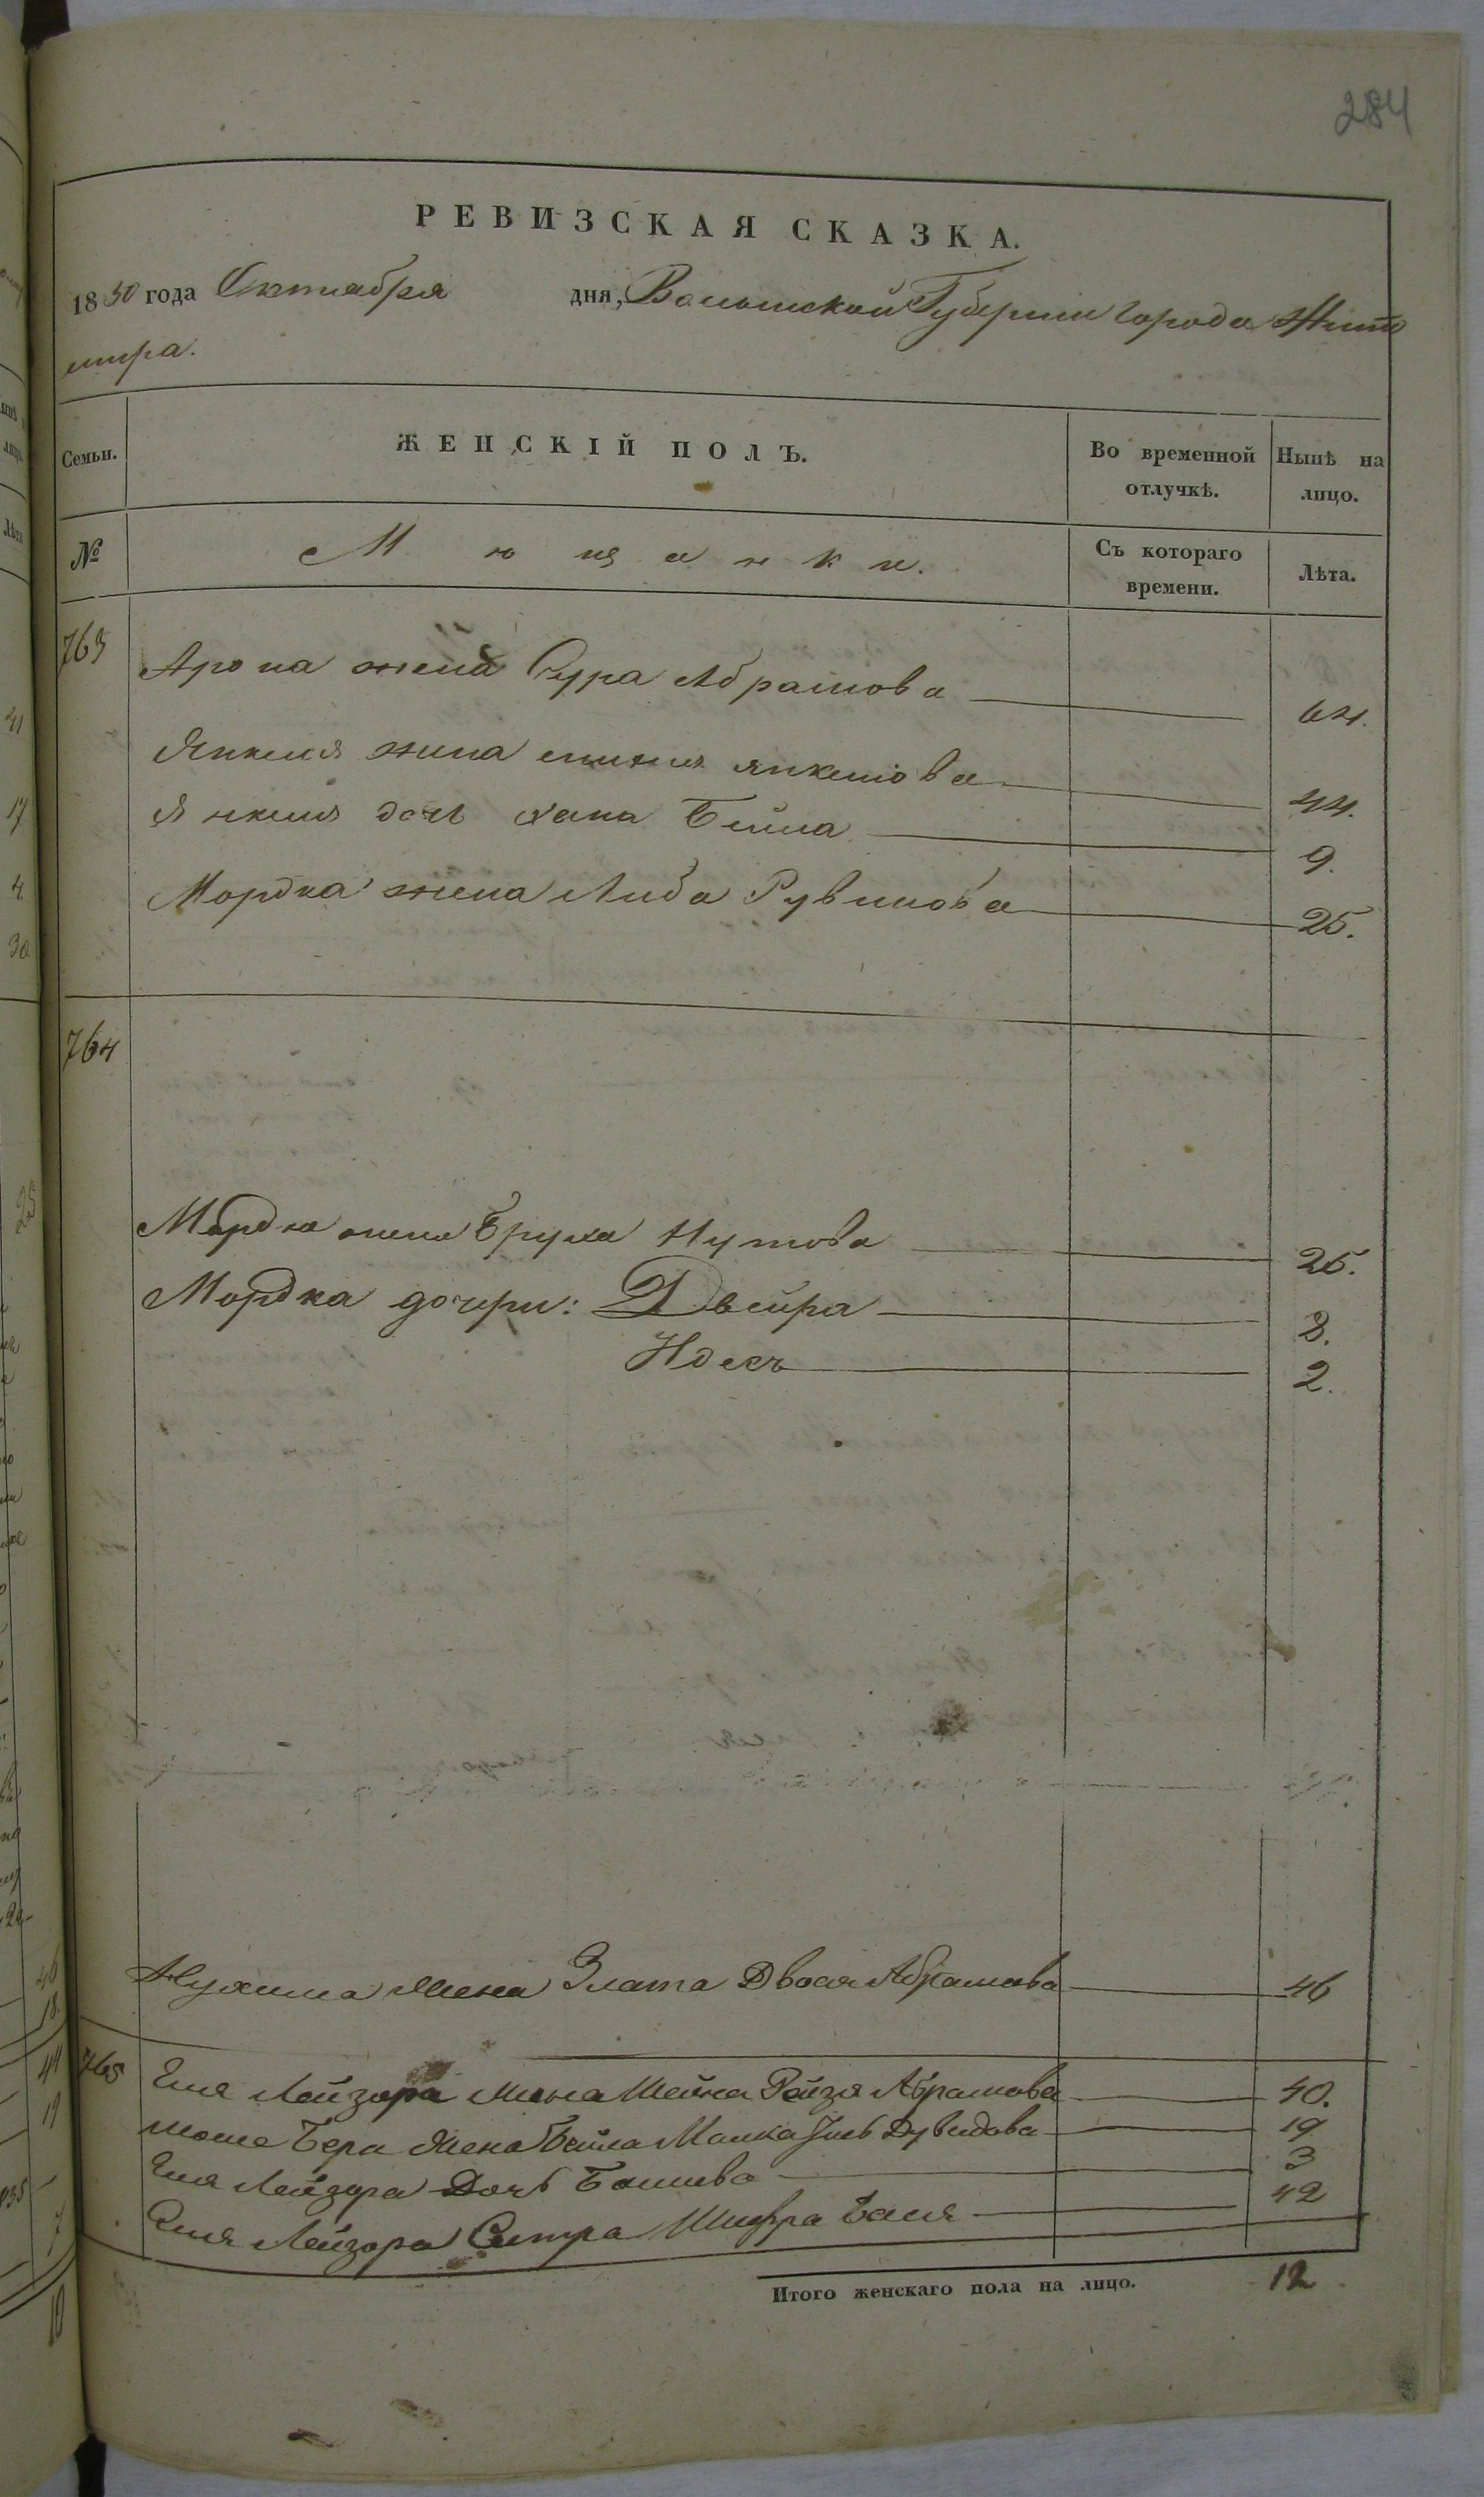 284
РЕВИЗСКАЯ СКАЗКА.
1850 года Октября дня, Волынской Губернии города Жито
мира.
Семьи. ЖЕНСКІЙ ПОЛЪ. Во временной отлучкѣ. Нынѣ на лицо.
№ Мѣщанки. Съ котораго времени. Лѣта.
763 Арона жена Сура Абрамова 64.
Янкеля жена Янкелова 44.
Янкеля дочь Хана Бейла 9.
Мордка жена Либа Рувинова 25.
764
Мордка жена Бруха Нутова 25.
Мордка дочери: Двейра 8.
Идесъ 2.
Нухима жена Злата Двося Абрамова 46
765 Еля Лейзора жена Шейна Рейзя Абрамова 40.
Моше Бера жена Бейла Малка Дувидова 19
Еля Лейзора Дочь Башева 3
Еля Лейзора Сестра Шифра Бася 42
Итого женскаго пола на лицо. 12